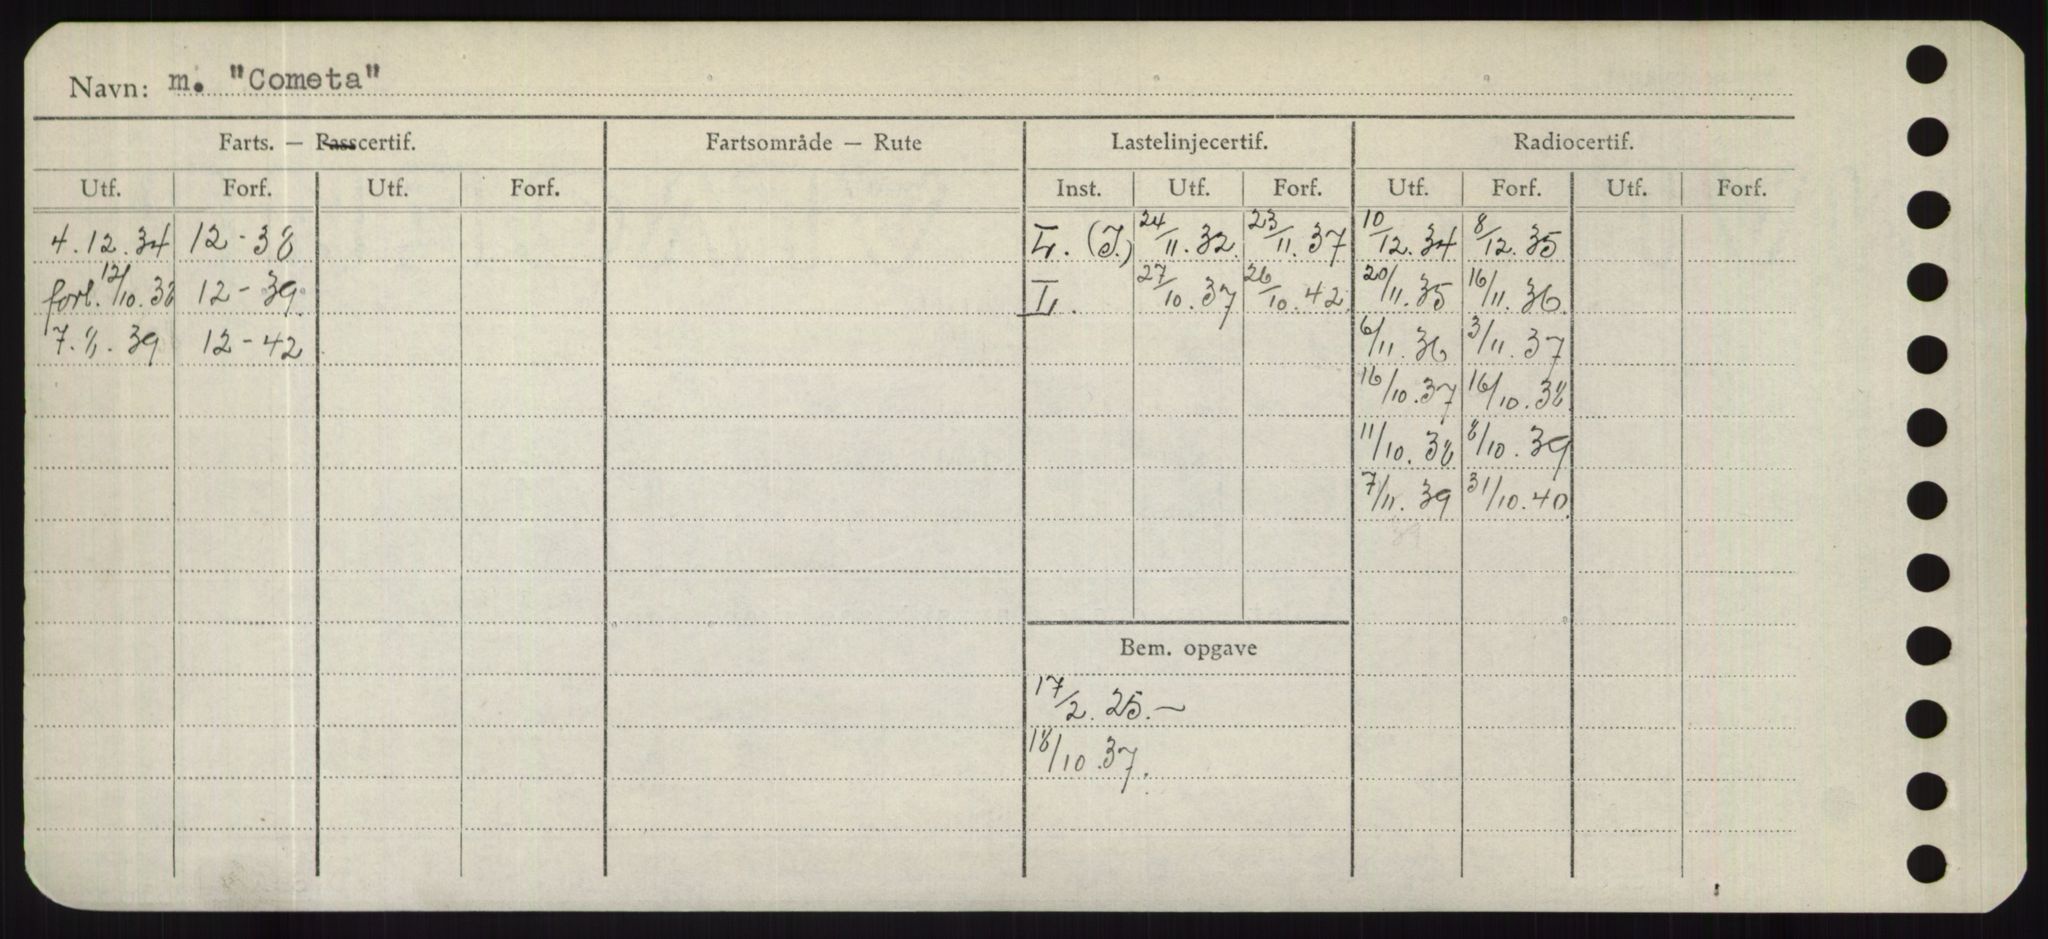 Navn: m. "Cometa"
Farts. — Passcertif. Fartsområde — Rute Lastelinjecertif. Radiocertif.
Utf. Forf. Utf. Forf. Inst. Utf. Forf. Utf. Forf. Utf. Forf.
4.12.34 12-38 L. (I.) 24/11.32. 23/11.37 10/12.34 8/12.35
forl. 12/10.38 12-39. L. 27/10.37 26/10.42 20/11.35 16/11.36.
7. 39 12-42 6/11.36 3/11.37
16/10.37 16/10.38.
11/10.38 8/10.39
7/11.39 31/10.40.
Bem. opgave
17/2.25.—
18/10.37.